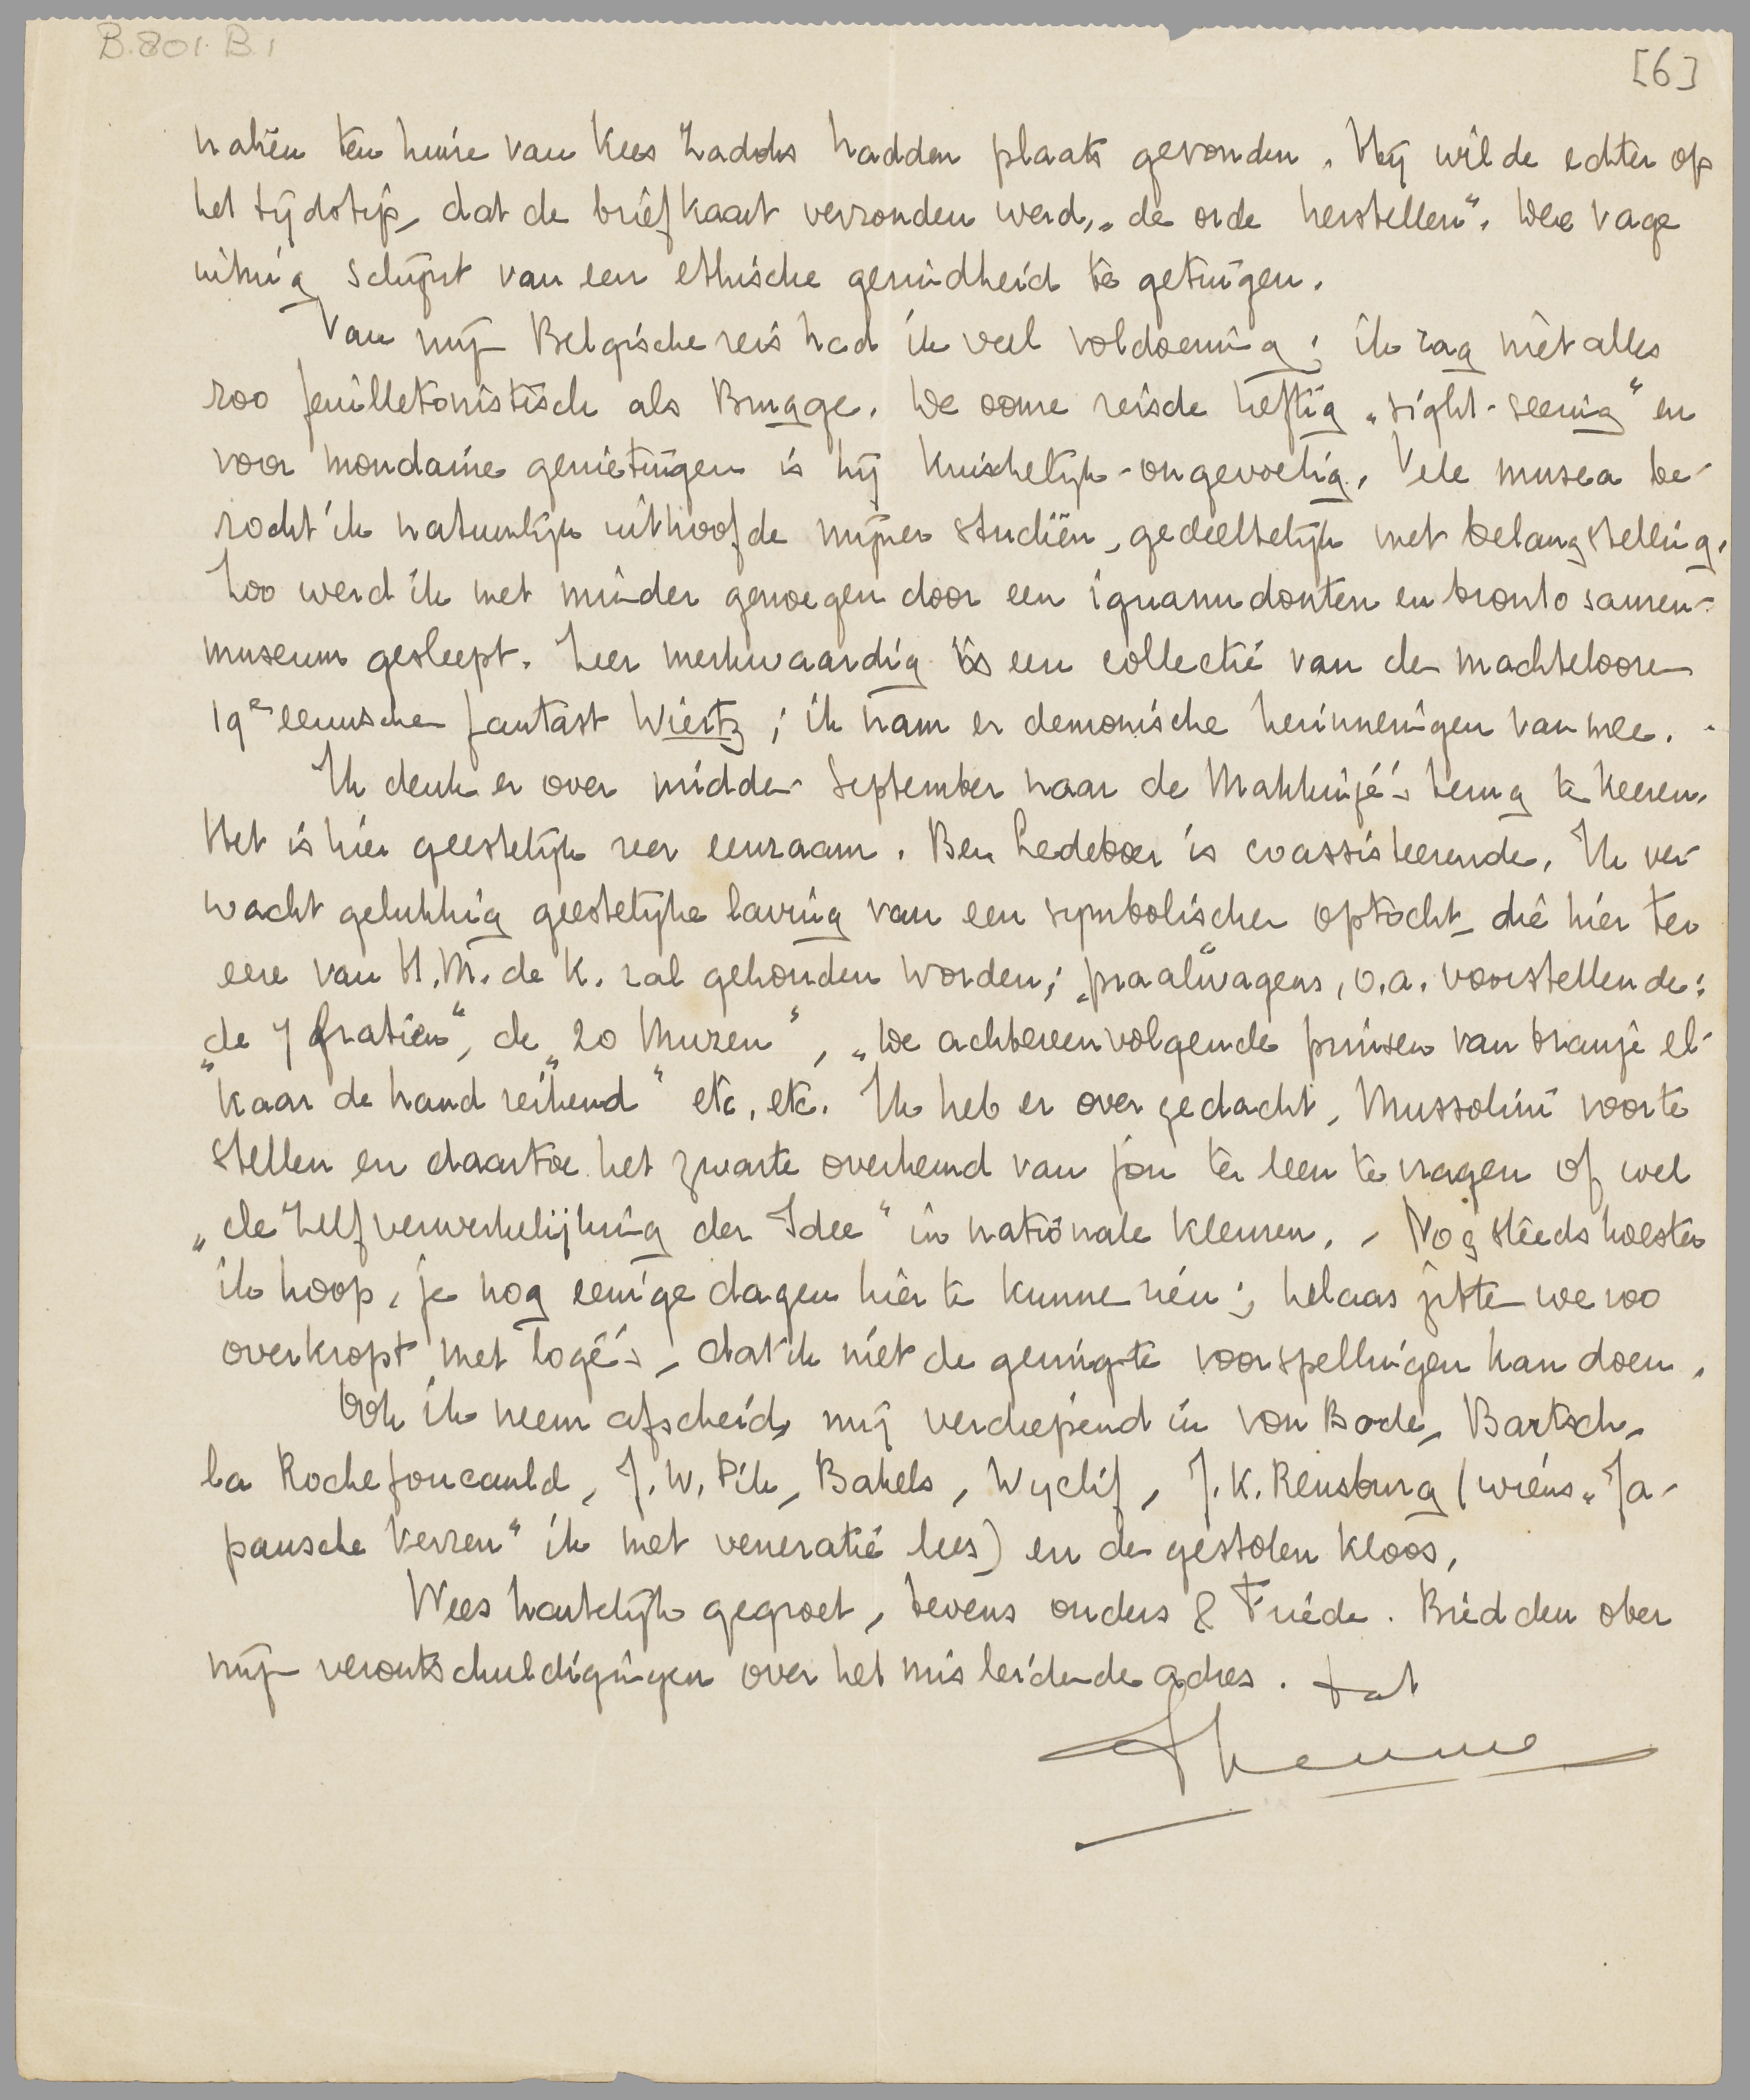 B.801.B.1
[6]
naliën ten huize van Kees hadden plaats gevonden. Hij wilde echter op
het tijdstip, dat de briefkaart verzonden werd, „de orde herstellen". Deze vage
uiting schijnt van een ethische gezindheid te getuigen.
Van mijn Belgische reis had ik veel voldoening; ik zag niet alles
zoo feuilletonistisch als Brugge. De oome reisde heftig „sight-seeing" en
voor mondaine genietingen is hij kuischelijk-ongevoelig. Vele musea be-
zocht ik natuurlijk uithoofde mijner studiën, gedeeltelijk met belangstelling.
Zoo werd ik met minder genoegen door een iguanudonten en bronto sauren-
museum gesleept. Zeer merkwaardig is een collectie van de machtelooze
19e eeuwsche fantast Wiertz; ik nam er demonische herinneringen van mee.
Ik denk er over midden September naar de Makkinjé's terug te keeren.
Het is hier geestelijk zeer eenzaam. Ben Ledeboer is coassisteerende. Ik ver-
wacht gelukkig geestelijke laving van een symbolischen optocht, die hier ter
eere van H.M. de K. zal gehouden worden; „praalwagens", o.a. voorstellende:
„de 7 Gratiën", de „20 Muzen", „De achtereenvolgende prinsen van Oranje el-
kaar de hand reikend" etc. etc. Ik heb er over gedacht, Mussolini voor te
stellen en daartoe het zwarte overhemd van jou te leen te vragen of wel
„de Zelfverwerkelijking der Idee" in nationale kleuren. - Nog steeds hoesten
ik hoop, je nog eenige dagen hier te kunnen zien; helaas zitten we zoo
overkropt met logé's, dat ik niet de geringste voorspellingen kan doen.
Ook ik neem afscheid, mij verdiepend in von Bode, Bartsch,
La Rochefoucauld, J.W. Pik, Bakels, Wyclif, J.K. Rensburg (wiens „Ja-
pansche Verzen" ik met veneratie lees) en de gestolen Kloos.
Wees hartelijk gegroet, tevens ouders & Friede. Bied den ober
mijn verontschuldigingen over het misleidende adres. tat